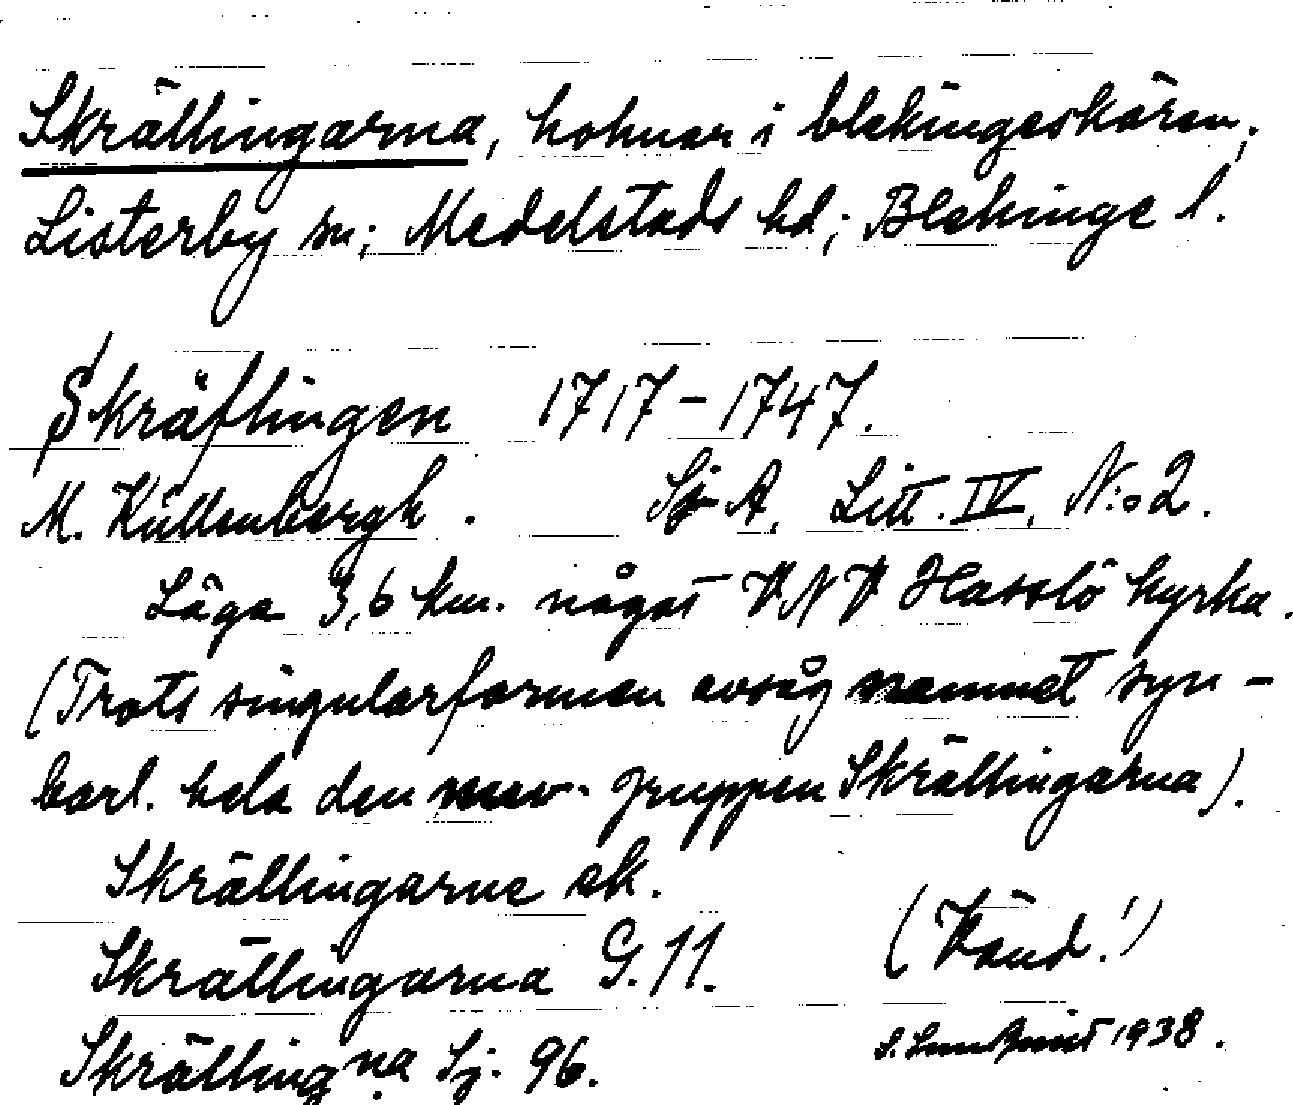 Skrällingarna, holmar i blekingeskären;
Listerby sn; Medelstads hd; Blekinge l.
Skräflingen 1717-1747.
M. Küllenbergh. Sj A, Litt. IV, N:o 2.
Läge 3,6 km. något VNV Hasslö kyrka.
(Trots singularformen avsåg namnet syn-
barl. hela den nuv. gruppen Skrällingarna).
Skrällingarne ek.
Skrällingarna G. 11. (Vänd!)
Skrälling.na Sj. 96. S. Lundquist 1938.